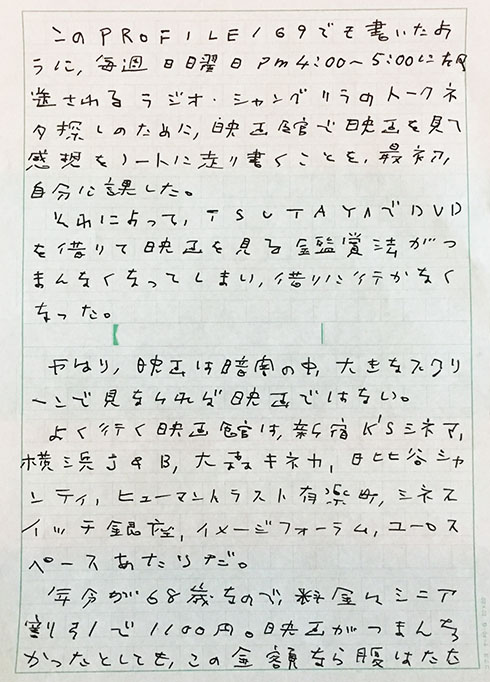 このPROFILE169でも書いたよ
うに，毎週日曜日Pm4:00〜5:00に放
送されるラジオ・シャングリラのトークネ
タ探しのために，映画館で映画を見て
感想をノートに走り書くことを，最初，
自分に課した。
それによって，TSUTAYAでDVD
を借りて映画を見る鑑賞法がつ
まんなくなってしまい，借りに行かなく
なった。
やはり，映画は暗闇の中，大きなスクリ
ーンで見なければ映画ではない。
よく行く映画館は，新宿K'Sシネマ，
横浜J&B，大森キネカ，日比谷シャ
ンティ，ヒューマントラスト有楽町，シネス
イッチ銀座，イメージフォーラム，ユーロス
ペースあたりだ。
年令が68歳なので，料金はシニア
割引で1100円。映画がつまんな
かったとしても，この金額なら腹はたた